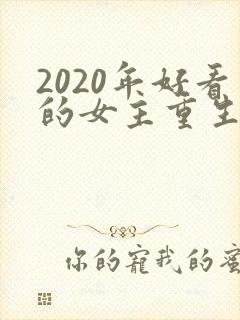 2020年好看
的女主重生
你的寵我的蜜